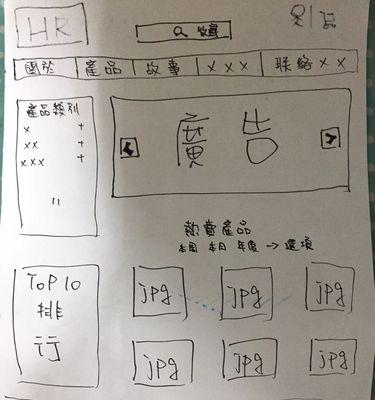 HR
搜尋
關於 產品 故事 XXX 联絡XX
產品類別
x +
xx +
xxx +
"
廣告
熱賣產品
本週 本月 年度 → 選項
TOP 10
排
行
jpg jpg jpg
jpg jpg jpg